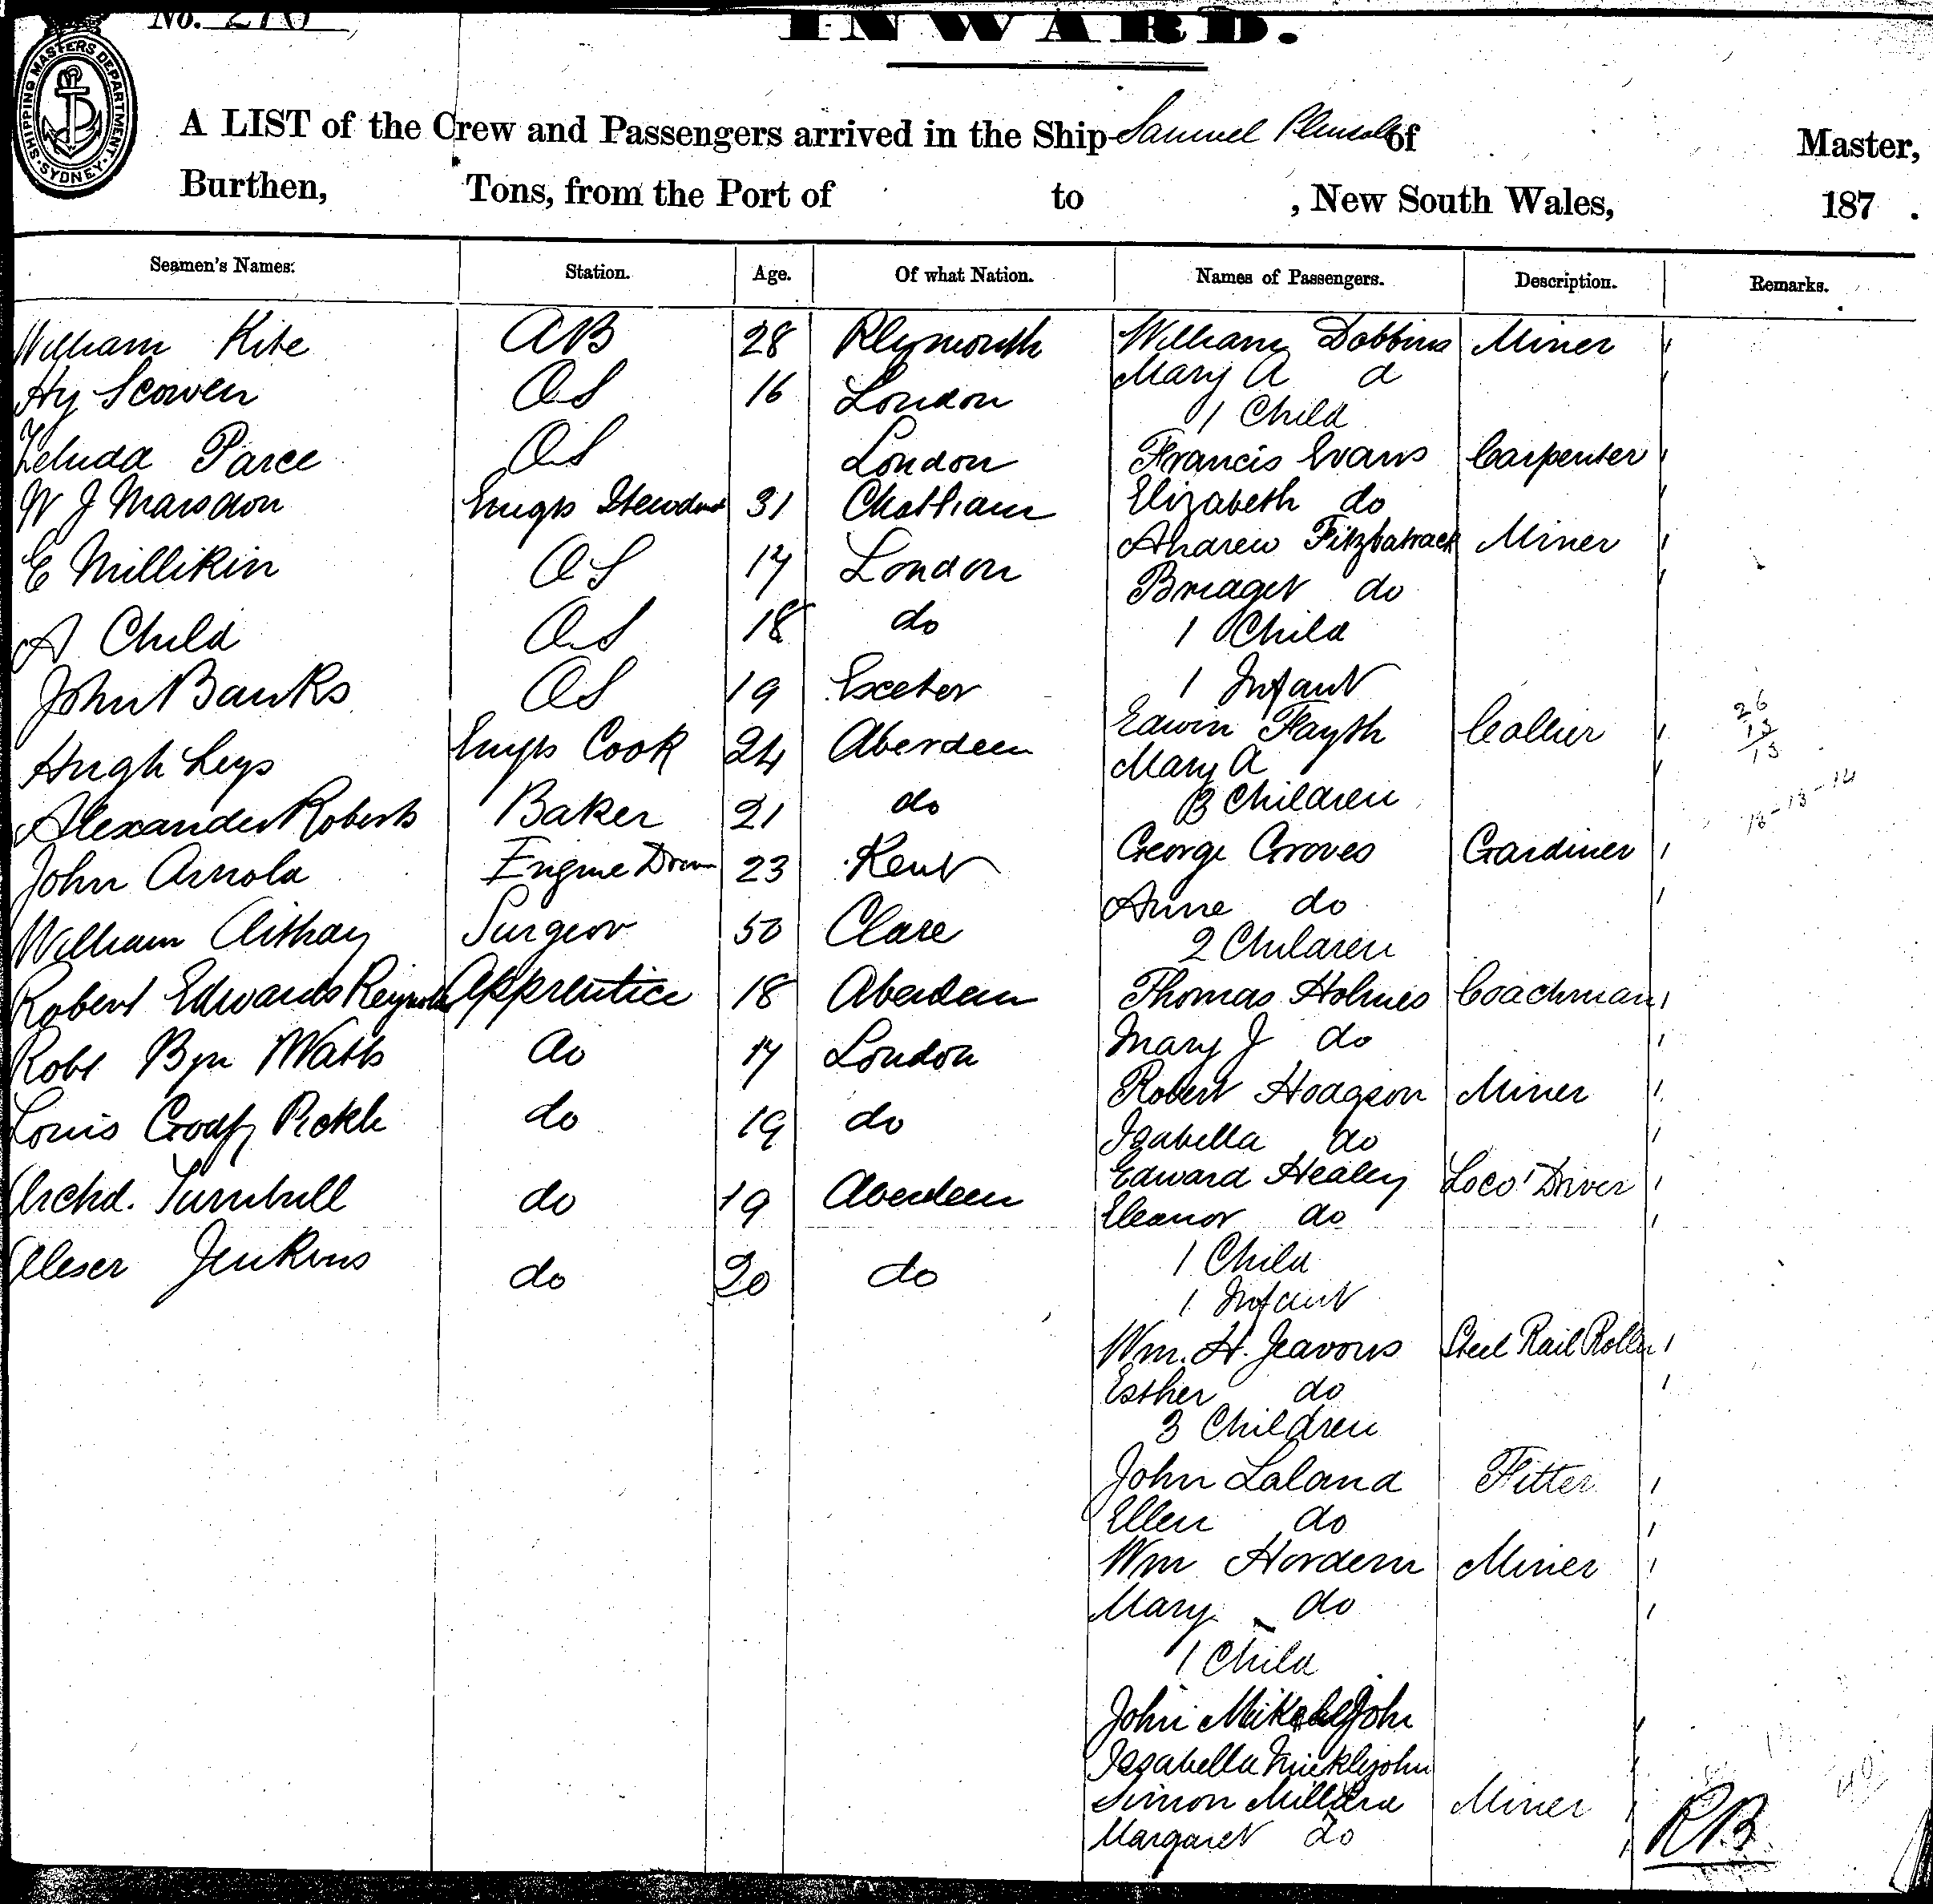 No. 210
INWARD.
SHIPPING MASTERS DEPARTMENT. SYDNEY.
A LIST of the Crew and Passengers arrived in the Ship Samuel Plimsoll of Master,
Burthen, Tons, from the Port of to , New South Wales, 187 .
Seamen's Names. Station. Age. Of what Nation. Names of Passengers. Description. Remarks.
William Kite AB 28 Plymouth William Dobbins Miner
Mary A d
Hy Scowen OS 16 London
1 Child
Parce OS London Francis Evans Carpenter
W J Marsdon Stewd 31 Chatham Elizabeth do
Andrew Fitzpatrack Miner
E Millikin OS 17 London
Bridget do
A Child OS 18 do 1 Child
John Banks OS 19 Exeter 1 Infant
Edwin Fayth Collier
Hugh Leys Cook 24 Aberdeen Mary A
3 Children
Alexander Roberts Baker 21 do
John Arnold Engine 23 Kent George Groves Gardiner
Anne do
William Surgeon 50 Clare 2 Children
Robert Edwards Reynolds Apprentice 18 Aberdeen Thomas Holmes Coachman
Mary J do
Robt Watts do 17 London
Robert Hodgson Miner
Louis Pickle do 19 do Izabella do
Edward Healey Loco' Driver
Archd. Turnbull do 19 Aberdeen Eleanor do
Jenkins do 20 do 1 Child
1 Infant
Wm. H. Jeavons Steel Rail Roller
Esther do
3 Children
John Laland Fitter
Ellen do
Wm Hordern Miner
Mary do
1 Child
John
Izabella Micklejohn
Simon Millard Miner
Margaret do
RB
26
13
13
13-13-14